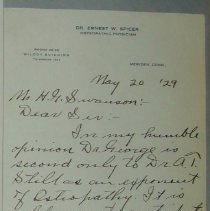 DR. ERNEST W. SPICER
OSTEOPATHIC PHYSICIAN
MERIDEN, CONN.
May 20 '29
Mr H. G. Swanson:-
Dear Sir:-
In my humble
opinion Dr George is
second only to Dr A. T.
Still as an exponent
of Osteopathy. It is